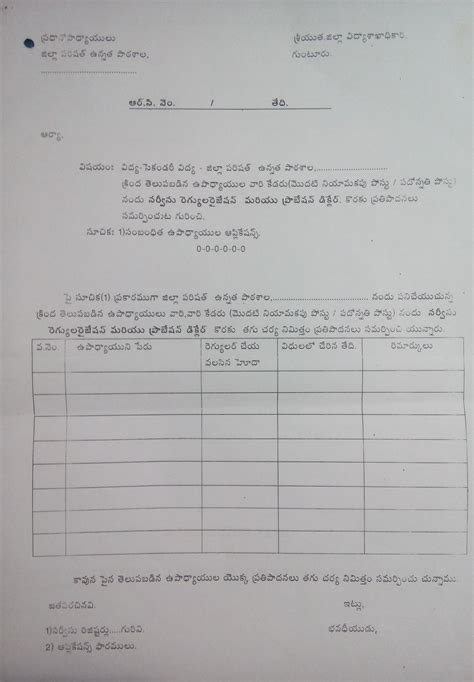 ప్రధానోపాధ్యాయులు
శ్రీయుత.జిల్లా విద్యాశాఖాధికారి.
జిల్లా పరిషత్ ఉన్నత పాఠశాల,
గుంటూరు.
................................
ఆర్.సి. నెం. / తేది.
ఆర్యా,
విషయం: విద్య-సెకండరీ విద్య - జిల్లా పరిషత్ ఉన్నత పాఠశాల,........................
క్రింద తెలుపబడిన ఉపాధ్యాయుల వారి కేడరు(మొదటి నియామకపు పోస్టు / పదోన్నతి పోస్టు)
నందు సర్వీసు రెగ్యులరైజేషన్ మరియు ప్రొబేషన్ డిక్లేర్. కొరకు ప్రతిపాదనలు
సమర్పించుట గురించి.
సూచిక: 1)సంబంధిత ఉపాధ్యాయుల అప్లికేషన్స్.
0-0-0-0-0-0
పై సూచిక(1) ప్రకారముగా జిల్లా పరిషత్ ఉన్నత పాఠశాల,................................ నందు పనిచేయుచున్న
క్రింద తెలుపబడిన ఉపాధ్యాయులు వారి,వారి కేడరు (మొదటి నియామకపు పోస్టు / పదోన్నతి పోస్టు) నందు సర్వీసు
రెగ్యులరైజేషన్ మరియు ప్రొబేషన్ డిక్లేర్ కొరకు తగు చర్య నిమిత్తం ప్రతిపాదనలు సమర్పించి యున్నారు.
వ.నెం. ఉపాధ్యాయుని పేరు రెగ్యులర్ చేయ విధులలో చేరిన తేది. రిమార్కులు
వలసిన హెూదా
కావున పైన తెలుపబడిన ఉపాధ్యాయుల యొక్క ప్రతిపాదనలు తగు చర్య నిమిత్తం సమర్పించు చున్నాము.
జతపరచినవి.
ఇట్లు,
1)సర్వీసు రిజిష్టర్లు....గురివి.
భవదీయుడు,
2) అప్లికేషన్స్ ఫారములు.